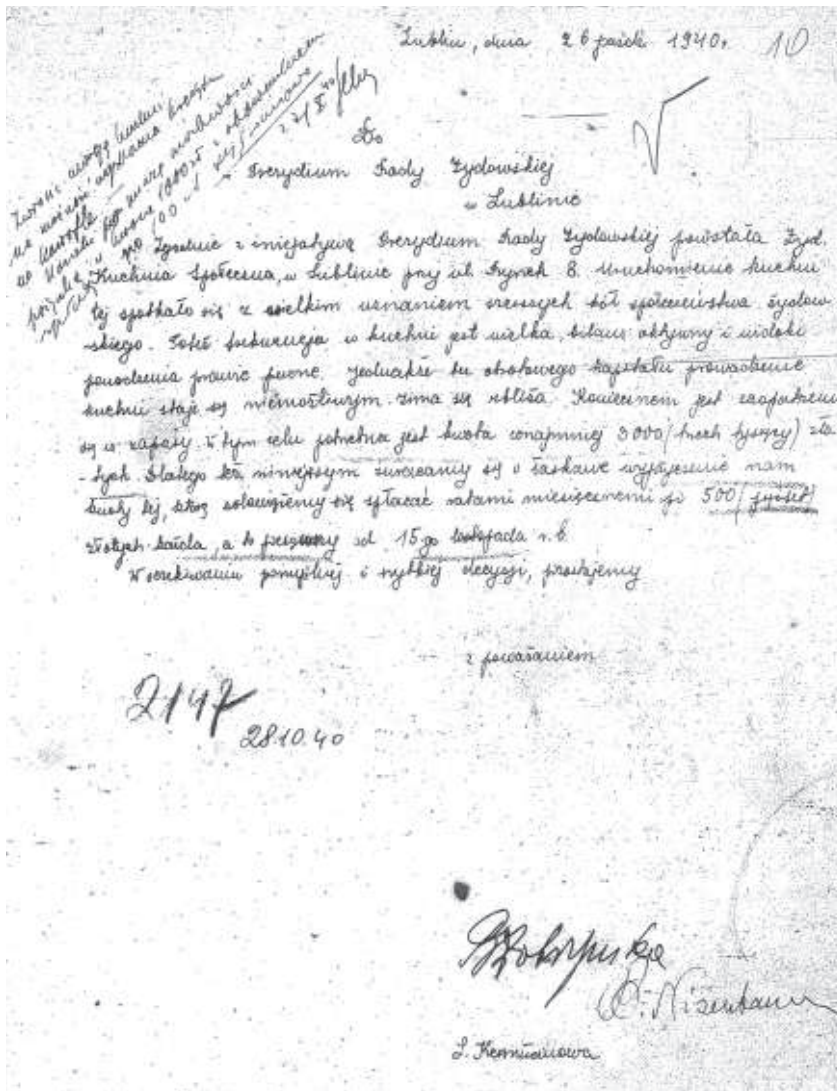 Lublin, dnia 26 paźdz. 1940 r.
10
Do
Prezydium Rady Żydowskiej
w Lublinie
Zgodnie z inicjatywą Prezydium Rady Żydowskiej powstała Żyd.
Kuchnia Społeczna, w Lublinie przy ul. Rynek 8. Uruchomienie kuchni
tej spotkało się z wielkim uznaniem szerszych kół społeczeństwa żydow-
skiego. Toteż frekwencja w kuchni jest wielka, bilans aktywny i widoki
powodzenia prawie pewne. Jednakże bez obrotowego kapitału prowadzenie
kuchni staje się niemożliwym. Zima się zbliża. Koniecznem jest zaopatrzenie
się w zapasy. W tym celu potrzebna jest kwota conajmniej 3000 (trzech tysięcy) zło-
-tych. Dlatego też niniejszym zwracamy się o łaskawe wypożyczenie nam
kwoty tej, którą zobowiążemy się spłacać ratami miesięcznemi po 500 (pięćset)
złotych każda, a to począwszy od 15-go listopada r. b.
W oczekiwaniu pomyślnej i rychłej decyzji, pozostajemy
z poważaniem
2147
28.10.40
Nisenbaum